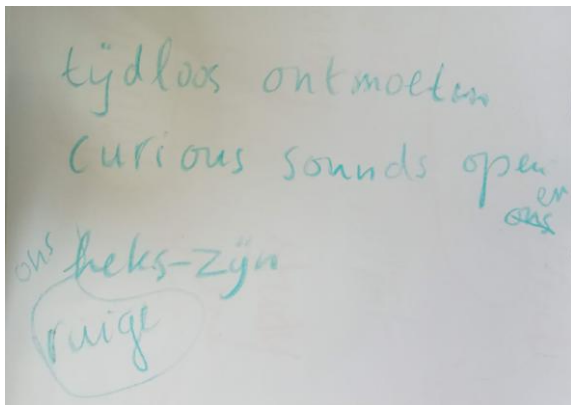 tijdloos ontmoeten
curious sounds open
en
ons
ons heks-zijn
ruige